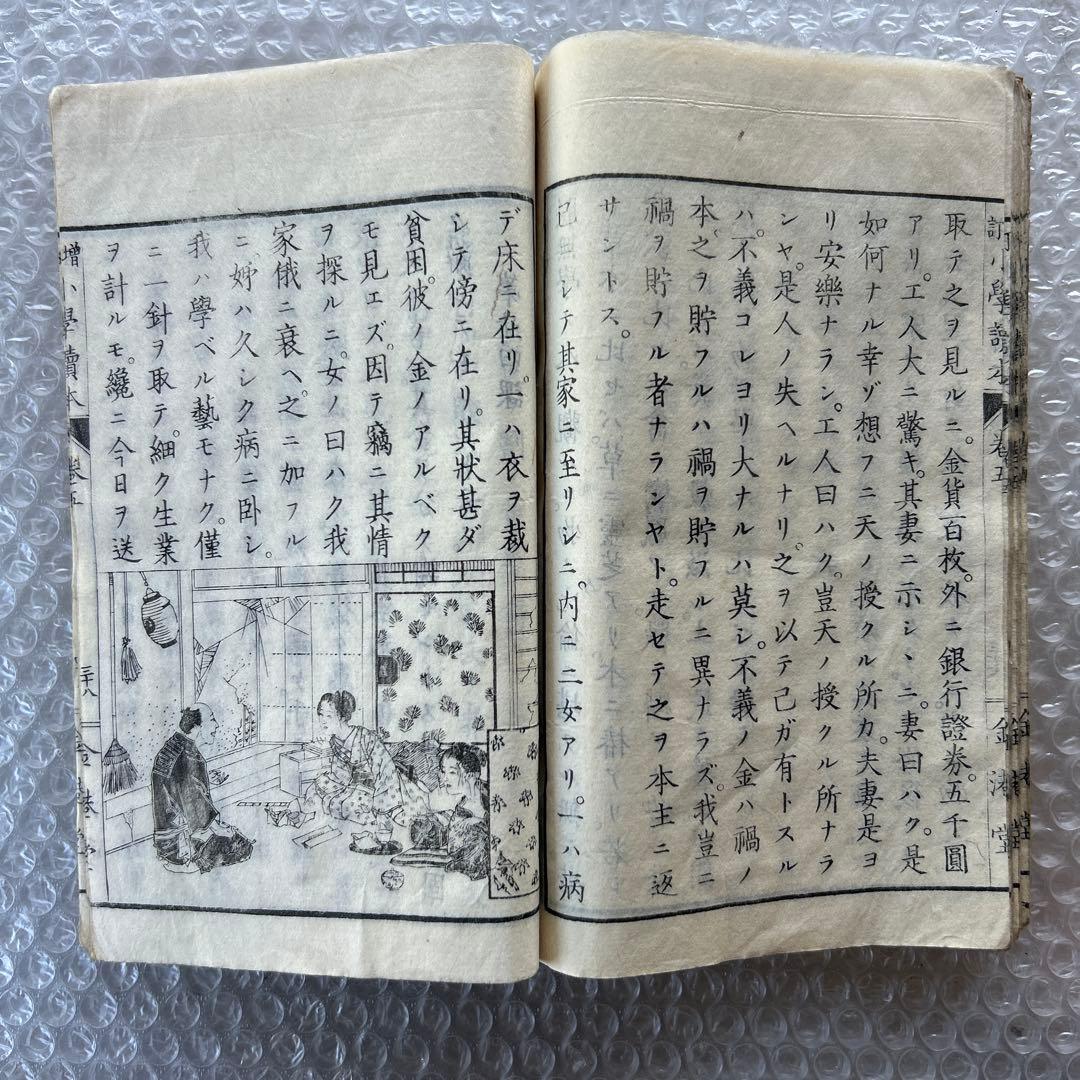 取テ之ヲ見ルニ。金貨一百枚。外ニ銀行證券。五千圓
アリ。工人大ニ驚キ。其妻ニ示シヽニ。妻曰ハク。是
如何ナル幸ゾ想フニ天ノ授クル所カ。夫妻是ヨ
リ安樂ナラン。工人曰ハク。豈天ノ授クル所ナラ
ンヤ。是人ノ失ヘルナリ。之ヲ以テ己ガ有トスル
ハ。不義コレヨリ大ナルハ莫シ。不義ノ金ハ禍ノ
本。之ヲ貯フルハ禍ヲ貯フルニ異ナラズ。我豈ニ
禍ヲ貯フル者ナランヤト。走セテ之ヲ本主ニ返
サントス。
シテ其家ニ至リシニ。内ニ二女アリ。一ハ病
デ床ニ在リ。一ハ衣ヲ裁
シテ傍ニ在リ。其狀甚ダ
貧困。彼ノ金ノアルベク
モ見エズ。因テ竊ニ其情
ヲ探ルニ。女ノ曰ハク我
家俄ニ衰ヘ。之ニ加フル
ニ。姊ハ久シク病ニ卧シ。
我ハ學ベル藝モナク。僅
ニ一針ヲ取テ。細ク生業
ヲ計ルモ。纔ニ今日ヲ送
小學讀本 卷五 金港堂
增 小學讀本 卷五 三十八